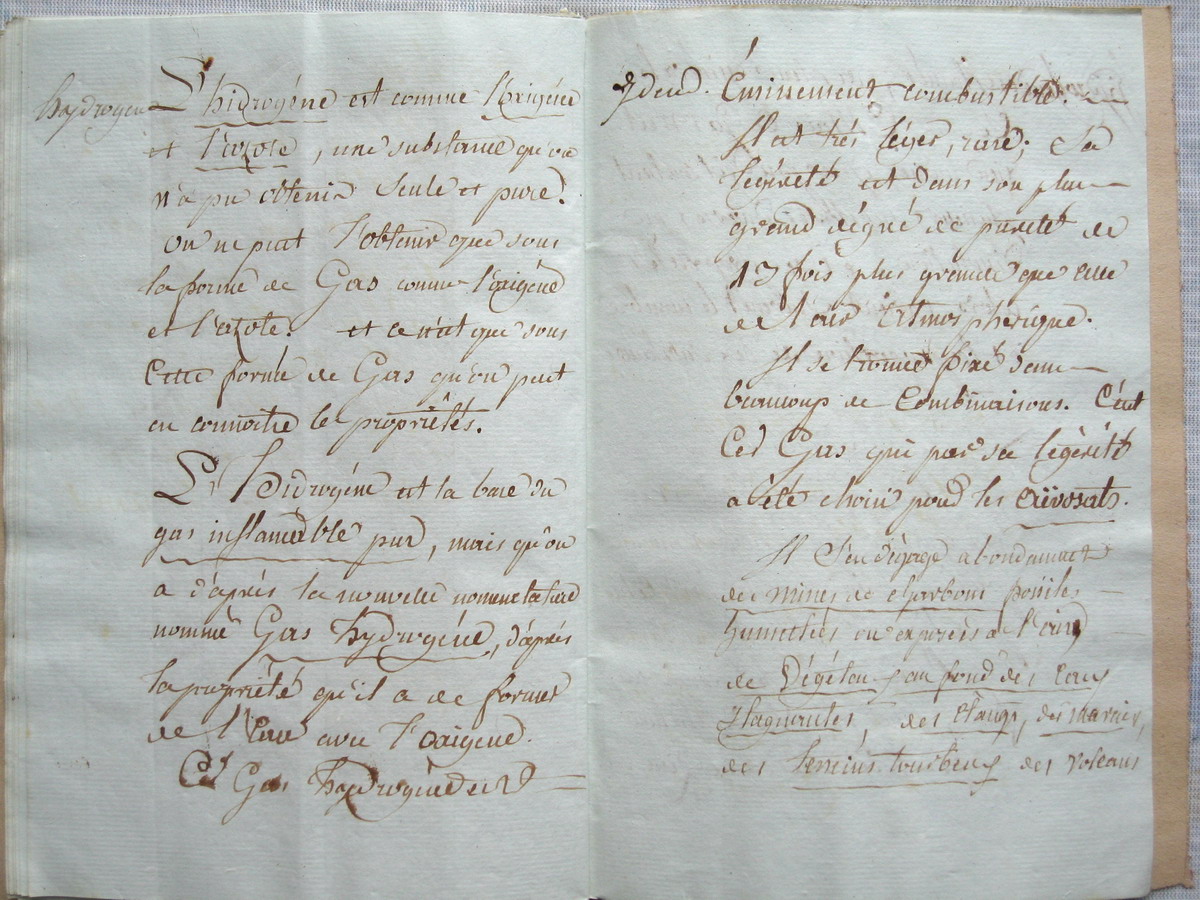 hydrogen
L'hidrogéne est comme l'Origéne
et l'azote, une substance qu'on
n'a pu obtenir seule et pure.
on ne peut l'obtenir que sous
la forme de Gas comme l'oxigéne
et l'azote. et ce n'est que sous
Cette forme de Gas qu'on peut
en connoitre les propriêtés.
L'hidrogéne est la base du
gas inflamable pur, mais qu'on
a d'aprés la nouvelle nomenclature
nommé Gas hydrogéne, d'aprés
la propriété qu'il a de former
de l'Eau avec l'oxigene.
Cet Gas hydrogéne est
Idem. Eminement combustible.
Il est trés léger, rare; & sa
legéreté est dans son plus
grand dégré de pureté de
13 fois plus grande que celle
de l'air Atmosphérique.
Il se trouve fixé dans
beaucoup de Combinaisons. C'est
Ces Gas qui par sa légéreté
a été choisi pour les aërostats.
Il s'en dégage abondament
des mines de charbons fossiles
humectées ou exposés à l'air
de Végétaux, au fond des Eaux
Stagnantes, des Etangs, des marais,
des terreins tourbeux des volcans